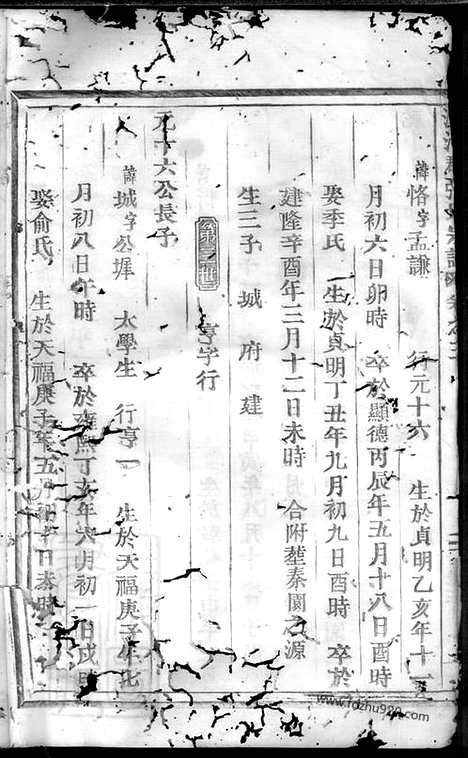 諱恪字孟謙 行元十六 生於貞明乙亥年十
月初六日卯時 卒於顯德丙辰年五月十八日酉時
娶季氏 生於貞明丁丑年九月初九日酉時 卒於
建隆辛酉年三月十二日未時 合附塟秦園之源
生三子 城 府 建
亨字行
元十六公長子
諱城字公墀 太學生 行亨一 生於天福庚子年
月初八日午時 卒於雍熙丁亥年六月初一日戌
娶俞氏 生於天福庚子年五月初十日未時
www.fozhu920.com